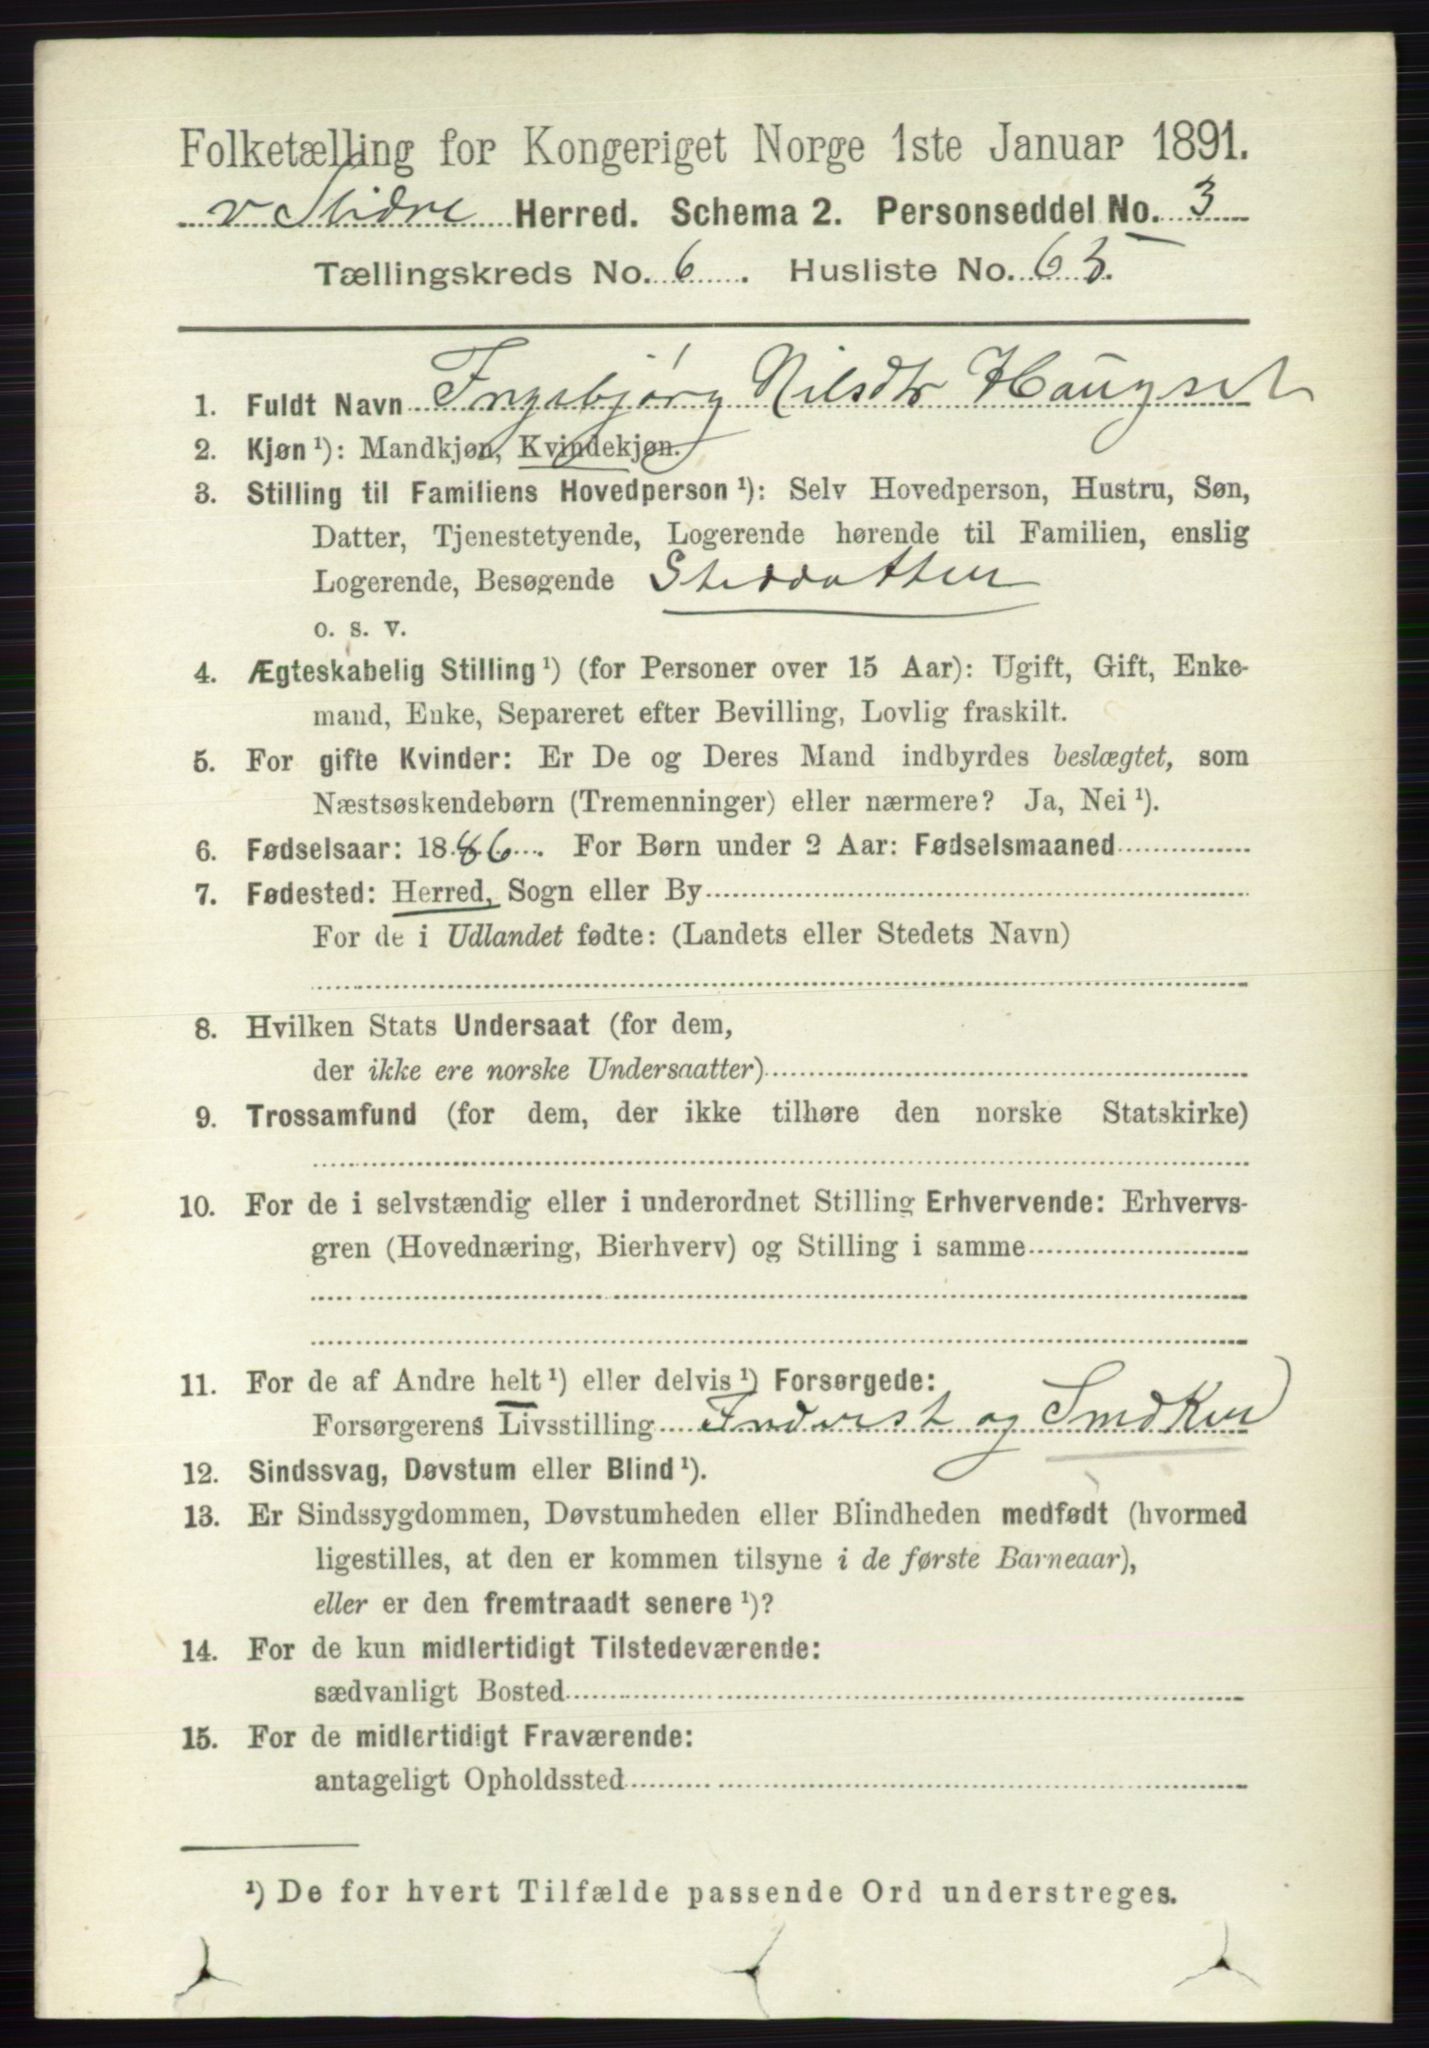 Folketælling for Kongeriget Norge 1ste Januar 1891.
v Slidre Herred. Schema 2. Personseddel No. 3
Tællingskreds No. 6. Husliste No. 63.
1. Fuldt Navn Ingebjørg Nilsdtr Haugset
2. Kjøn ¹): Mandkjøn, Kvindekjøn.
3. Stilling til Familiens Hovedperson ¹): Selv Hovedperson, Hustru, Søn,
Datter, Tjenestetyende, Logerende hørende til Familien, enslig
Logerende, Besøgende Steddatter
o. s. v.
4. Ægteskabelig Stilling ¹) (for Personer over 15 Aar): Ugift, Gift, Enke-
mand, Enke, Separeret efter Bevilling, Lovlig fraskilt.
5. For gifte Kvinder: Er De og Deres Mand indbyrdes beslægtet, som
Næstsøskendebørn (Tremenninger) eller nærmere? Ja, Nei ¹).
6. Fødselsaar: 1886. For Børn under 2 Aar: Fødselsmaaned
7. Fødested: Herred, Sogn eller By
For de i Udlandet fødte: (Landets eller Stedets Navn)
8. Hvilken Stats Undersaat (for dem,
der ikke ere norske Undersaatter)
9. Trossamfund (for dem, der ikke tilhøre den norske Statskirke)
10. For de i selvstændig eller i underordnet Stilling Erhvervende: Erhvervs-
gren (Hovednæring, Bierhverv) og Stilling i samme
11. For de af Andre helt ¹) eller delvis ¹) Forsørgede:
Forsørgerens Livsstilling Inderst og
12. Sindssvag, Døvstum eller Blind ¹).
13. Er Sindssygdommen, Døvstumheden eller Blindheden medfødt (hvormed
ligestilles, at den er kommen tilsyne i de første Barneaar),
eller er den fremtraadt senere ¹)?
14. For de kun midlertidigt Tilstedeværende:
sædvanligt Bosted
15. For de midlertidigt Fraværende:
antageligt Opholdssted
¹) De for hvert Tilfælde passende Ord understreges.